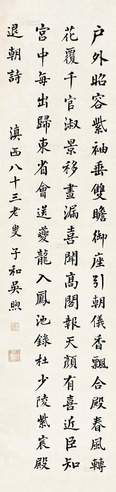 戶外昭容紫袖垂雙瞻御座引朝儀香飄合殿春風轉
花覆千官淑景移晝漏喜聞高閣報天顏有喜近臣知
宮中每出歸東省會送夔龍入鳳池錄杜少陵紫宸殿
退朝詩 滇西八十三老叟 子和吳煦